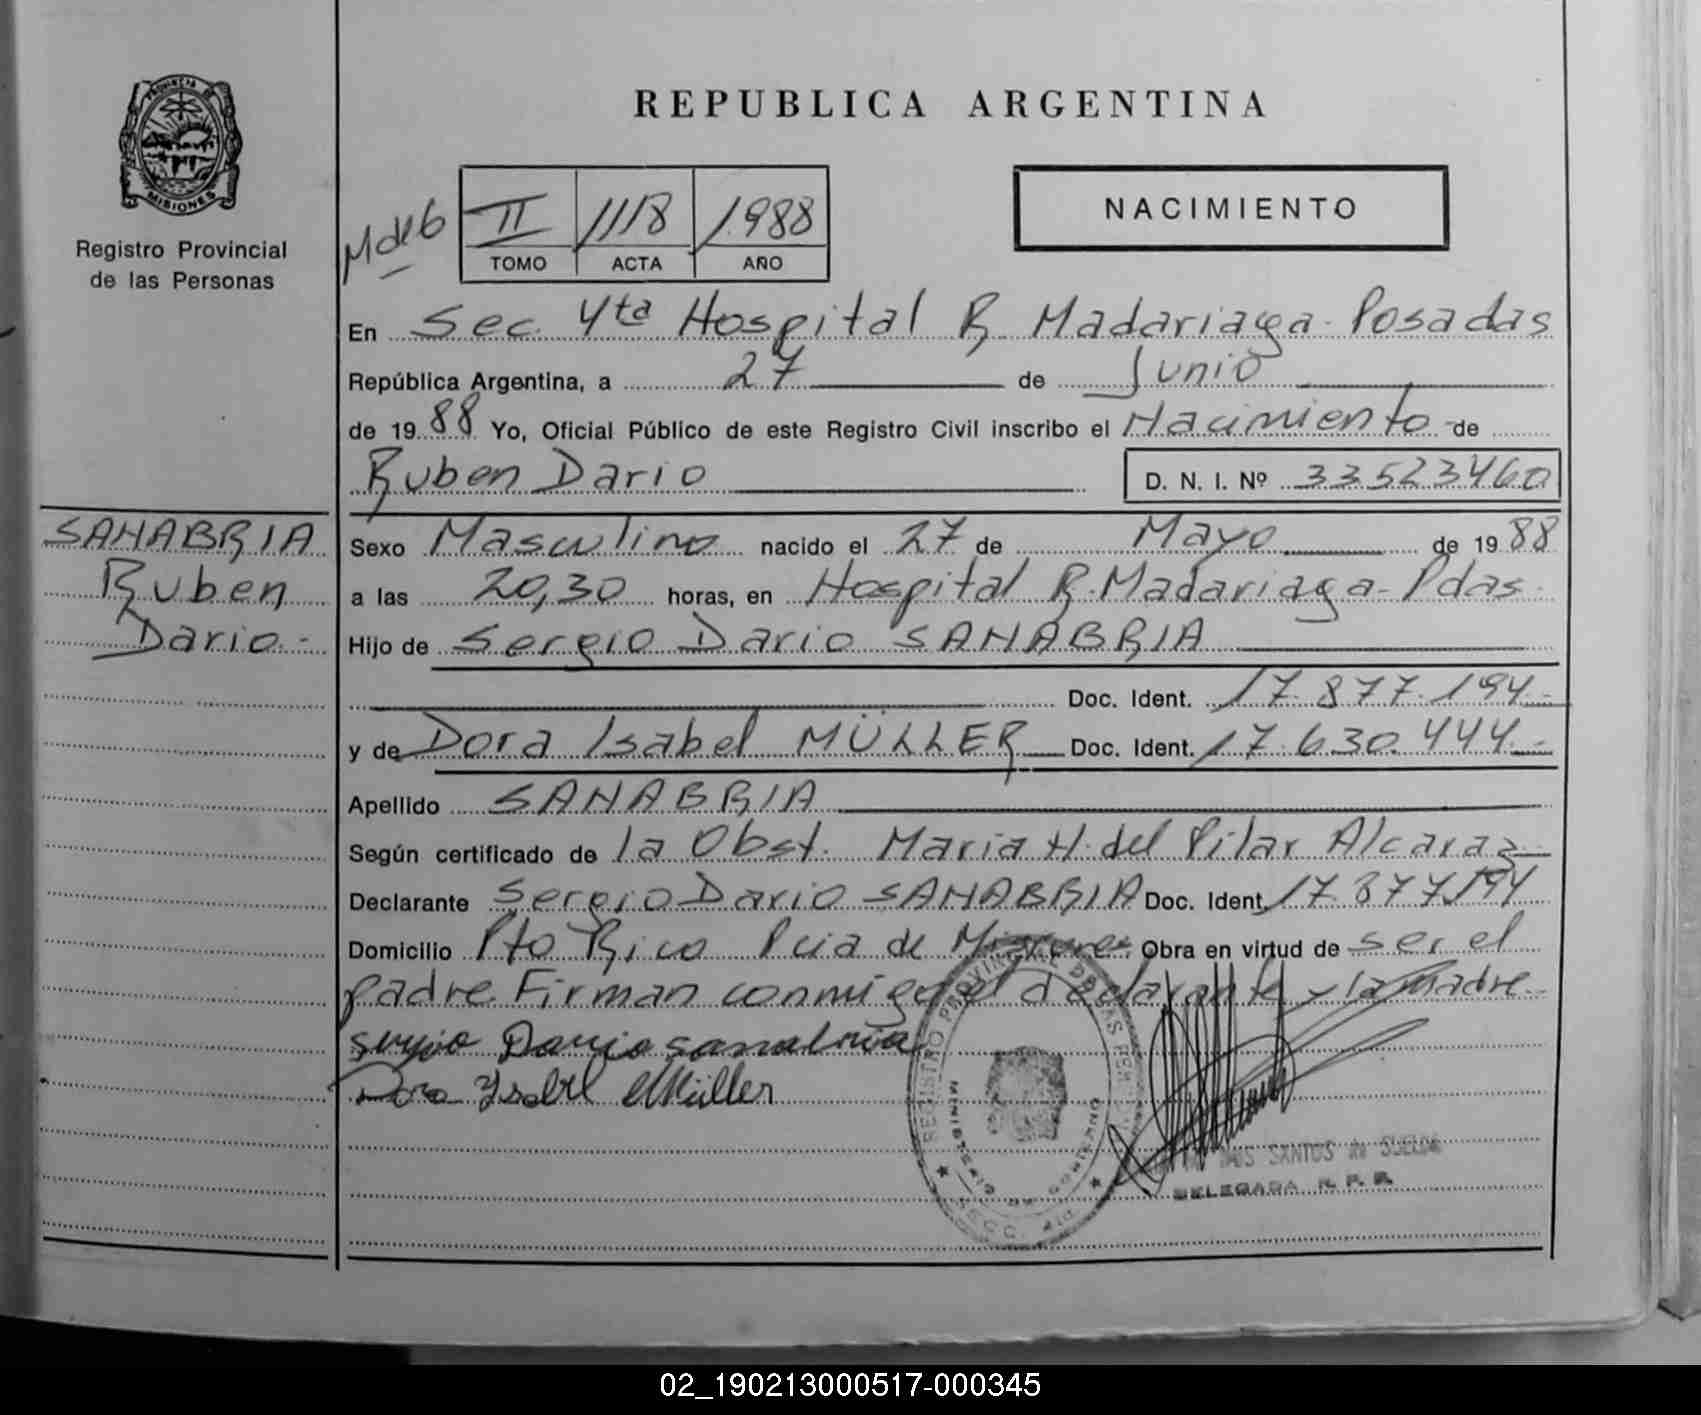 PROVINCIA DE
MISIONES
Registro Provincial
de las Personas
REPUBLICA ARGENTINA
II 1118 1.988
TOMO ACTA AÑO
NACIMIENTO
En Sec. 4ta Hospital R. Madariaga - Posadas
República Argentina, a 27 de Junio
de 1988 Yo, Oficial Público de este Registro Civil inscribo el Nacimiento de
Ruben Dario D. N. I. Nº 33523460
SANABRIA
Ruben
Dario.-
Sexo Masculino nacido el 27 de Mayo de 1988
a las 20,30 horas, en Hospital R. Madariaga - Pdas.
Hijo de Sergio Dario SANABRIA
Doc. Ident. 17.877.194.-
y de Dora Isabel MÜLLER Doc. Ident. 17.630.444.-
Apellido SANABRIA
Según certificado de la Obst. Maria H. del Pilar Alcaraz
Declarante Sergio Dario SANABRIA Doc. Ident. 17.877.194
Domicilio Pto Rico Pcia de Misiones. Obra en virtud de ser el
padre. Firman conmigo el declarante y la madre.-
Sergio Dario Sanabria
Dora Ysabel Müller
REGISTRO PROVINCIAL DE LAS PER
MINISTERIO DE GOBIERNO
SECC.
SANTOS de
DELEGADA R. P. P.
02_190213000517-000345